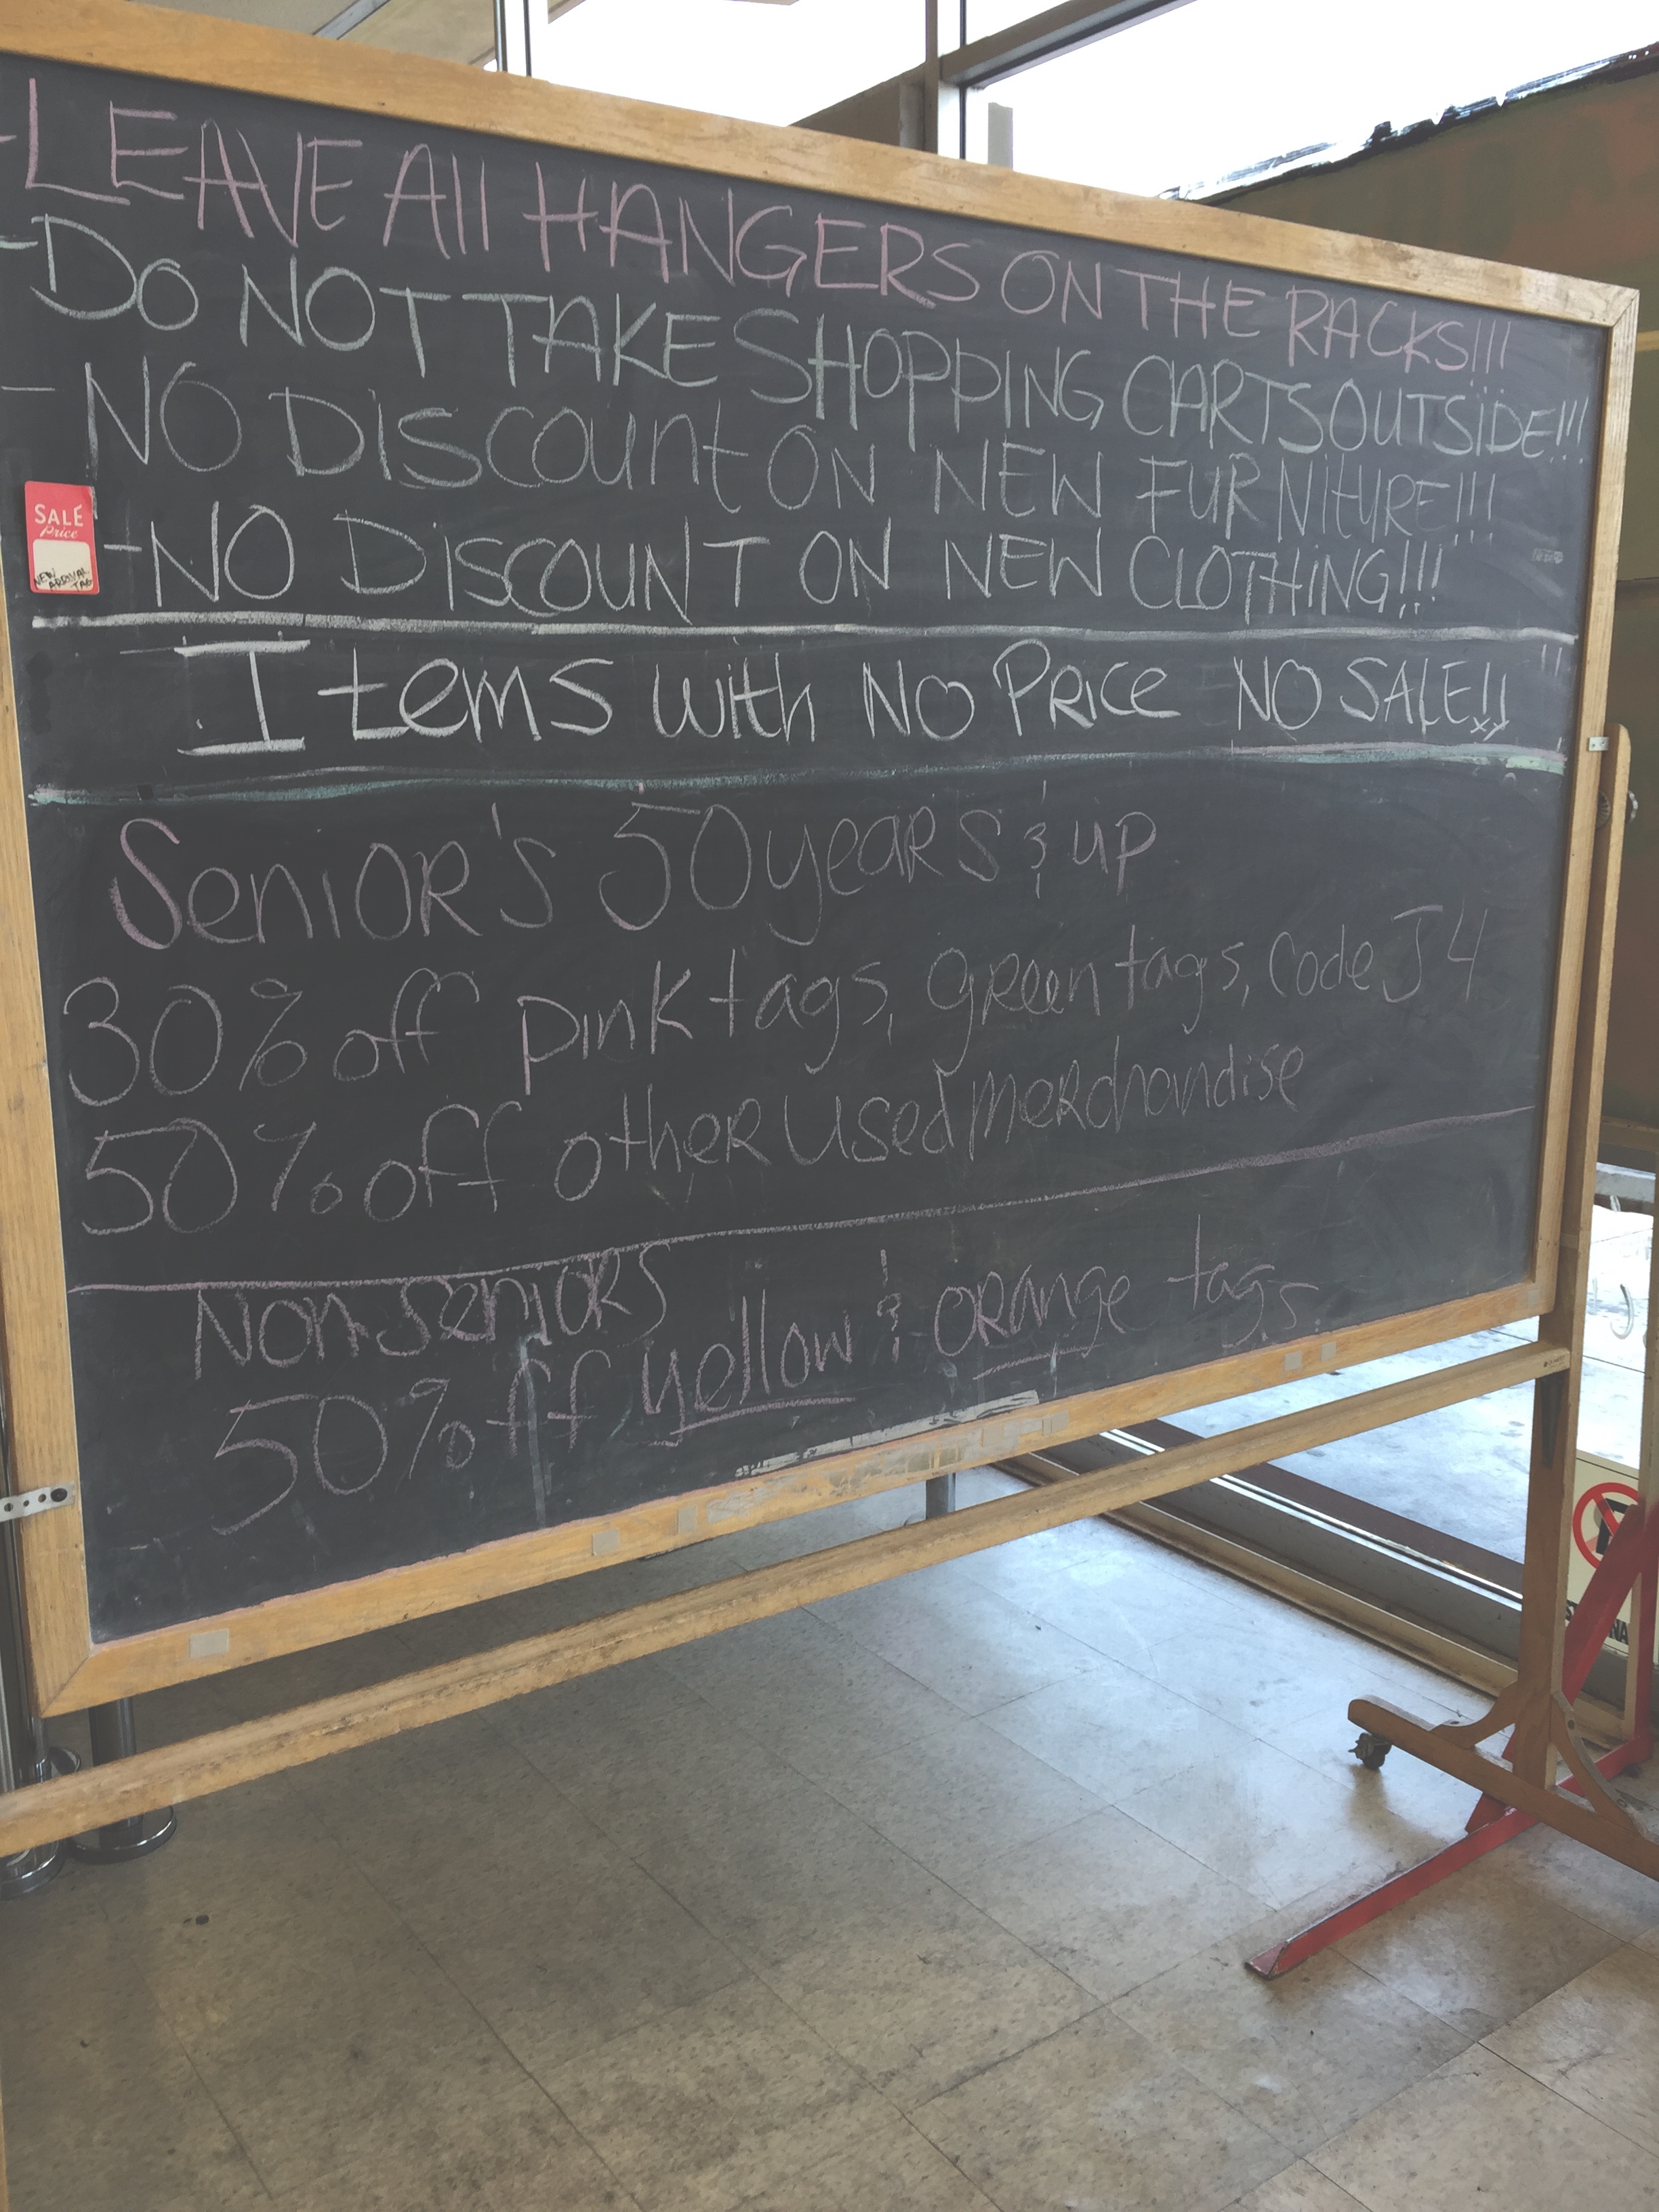 -LEAVE All HANGERS ON THE RACKS!!!
-DO NOT TAKE SHOPPING CARTS OUTSIDE!!!
-NO DISCOUNT ON NEW FURNITURE!!!
SALE
Price
NEW
ARRIVAL
TAG
-NO DISCOUNT ON NEW CLOTHING!!!
Items with NO PRICE NO SALE!!
Senior's 50 years & up
30% off pink tags, green tags, Code J4
50% off other used merchandise
Non seniors
50% off yellow & orange tags